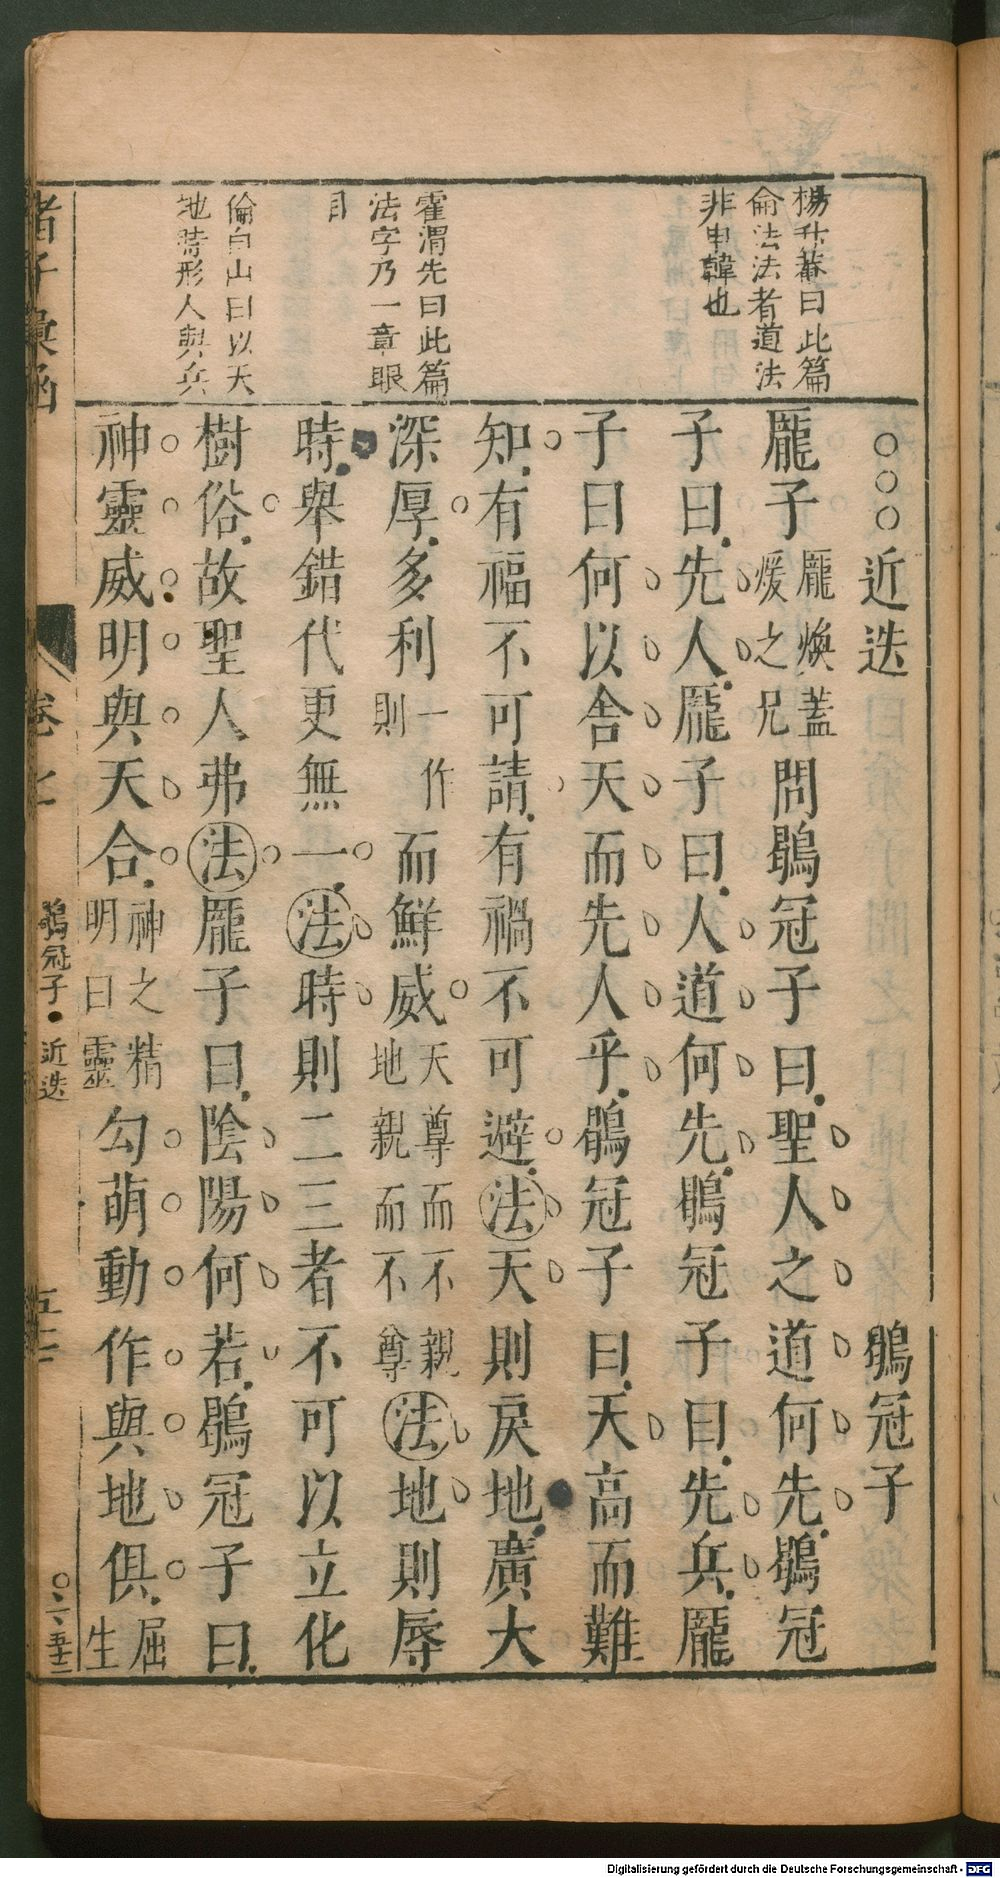 楊升菴曰此篇
侖法法者道法
非申韓也
霍渭先曰此篇
法字乃一章眼
目
倫白山曰以天
地時形人與兵
○○○近迭 鶡冠子
龐子龐煥蓋煖之兄問鶡冠子曰聖人之道何先鶡冠
子曰先人龐子曰人道何先鶡冠子曰先兵龐
子曰何以舍天而先人乎鶡冠子曰天高而難
知有福不可請有禍不可避法天則戾地廣大
深厚多利一作則而鮮威天尊而不親地親而不尊法地則辱
時舉錯代更無一法時則二三者不可以立化
樹俗故聖人弗法龐子曰陰陽何若鶡冠子曰
神靈威明與天合神之精明曰靈勾萌動作與地俱屈生
諸子彙函 卷七 鶡冠子·近迭 五十二
Digitalisierung gefördert durch die Deutsche Forschungsgemeinschaft - DFG